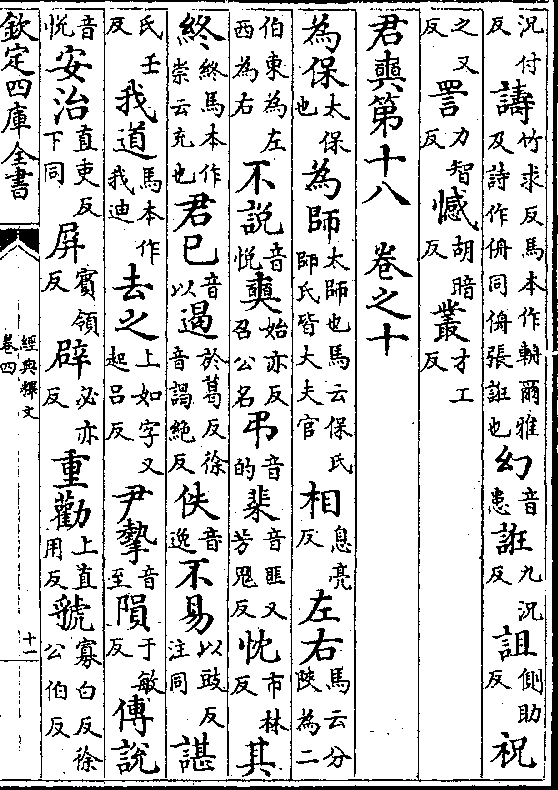 況付反譸竹求反馬本作輈爾雅及詩作侜同侜張誑也幻音患誑九況反詛側助反祝
之又反詈力智反憾胡暗反叢才工反
君奭第十八　卷之十
為保太保也為師太師也馬云保氏師氏皆大夫官相息亮反左右馬云分陜為二
伯東為左西為右不說音悅奭始亦反召公名弔音的棐音匪又芳鬼反忱市林反其
終終馬本作崇云充也君已音以遏於葛反徐音謁絶反佚音逸不易以豉反注同諶
氏壬反我道馬本作我迪去之上如字又起呂反尹摯音至隕于敏反傅說
音悅安治直吏反下同屏賓領反辟必亦反重勸上直用反虢寡白反徐公伯反
欽定四庫全書
經典釋文
卷四
十一